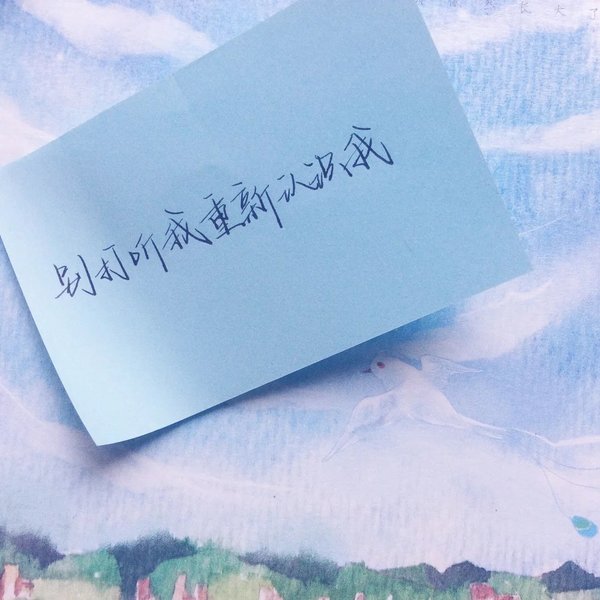 长大了
别打听我重新认识我